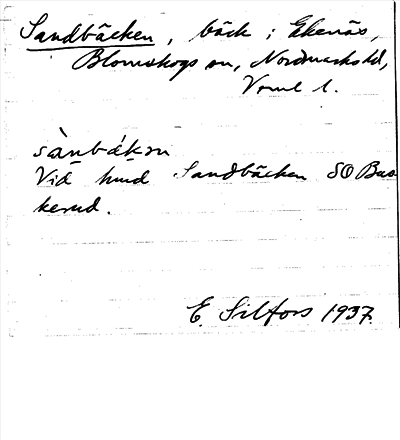 Sandbäcken, bäck i Ekenäs,
Blomskogs sn, Nordmarks hd,
Värml l.
sànbákɳ
Vid hmd Sandbäcken SO Bas
kerud.
E. Silfors 1937.